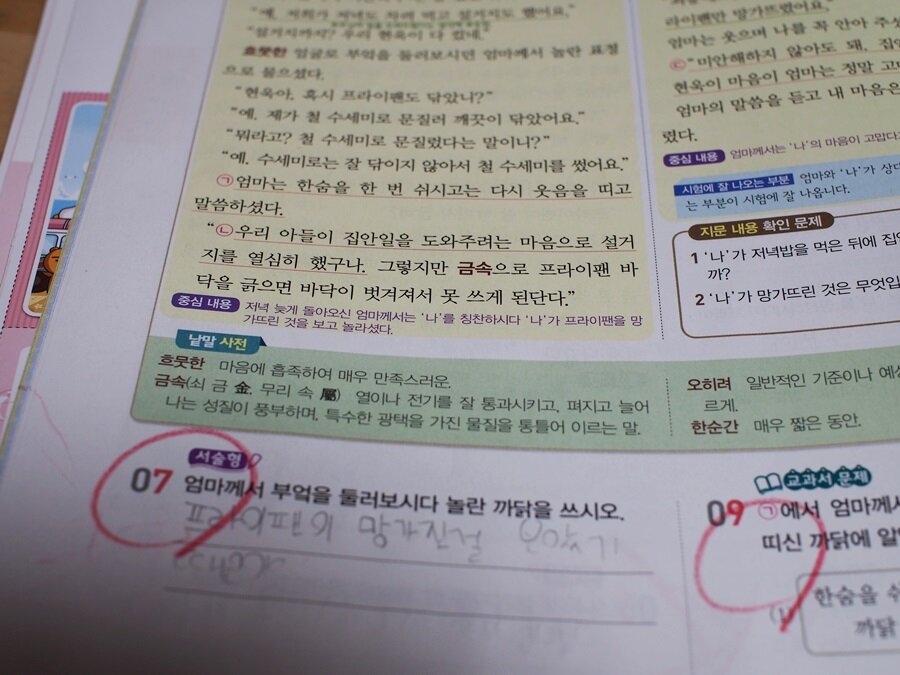 "예. 저희가 저녁도 차려 먹고 설거지도 했어요."
"설거지까지? 우리 현욱이 다 컸네."
흐뭇한 얼굴로 부엌을 둘러보시던 엄마께서 놀란 표정
으로 물으셨다.
"현욱아. 혹시 프라이팬도 닦았니?"
"예. 제가 철 수세미로 문질러 깨끗이 닦았어요."
"뭐라고? 철 수세미로 문질렀다는 말이니?"
"예. 수세미로는 잘 닦이지 않아서 철 수세미를 썼어요."
㉠엄마는 한숨을 한 번 쉬시고는 다시 웃음을 띠고
말씀하셨다.
"㉡우리 아들이 집안일을 도와주려는 마음으로 설거
지를 열심히 했구나. 그렇지만 금속으로 프라이팬 바
닥을 긁으면 바닥이 벗겨져서 못 쓰게 된단다."
중심 내용 저녁 늦게 돌아오신 엄마께서는 '나'를 칭찬하시다 '나'가 프라이팬을 망
가뜨린 것을 보고 놀라셨다.
라이팬만 망가뜨렸어요."
엄마는 웃으며 나를 꼭 안아 주셨
㉢"미안해하지 않아도 돼. 집안
현욱이 마음이 엄마는 정말 고마
엄마의 말씀을 듣고 내 마음은
렸다.
중심 내용 엄마께서는 '나'의 마음이 고맙다고
시험에 잘 나오는 부분 엄마와 '나'가 상대
는 부분이 시험에 잘 나옵니다.
지문 내용 확인 문제
1 '나'가 저녁밥을 먹은 뒤에 집안
까?
2 '나'가 망가뜨린 것은 무엇입
낱말 사전
흐뭇한 마음에 흡족하여 매우 만족스러운.
금속(쇠 금 金, 무리 속 屬) 열이나 전기를 잘 통과시키고, 펴지고 늘어
나는 성질이 풍부하며, 특수한 광택을 가진 물질을 통틀어 이르는 말.
오히려 일반적인 기준이나 예상
르게.
한순간 매우 짧은 동안.
서술형
07 엄마께서 부엌을 둘러보시다 놀란 까닭을 쓰시오.
프라이팬의 망가진걸 보았기
때문에
교과서 문제
09 ㉠에서 엄마께서
띠신 까닭에 알
한숨을 쉬
까닭